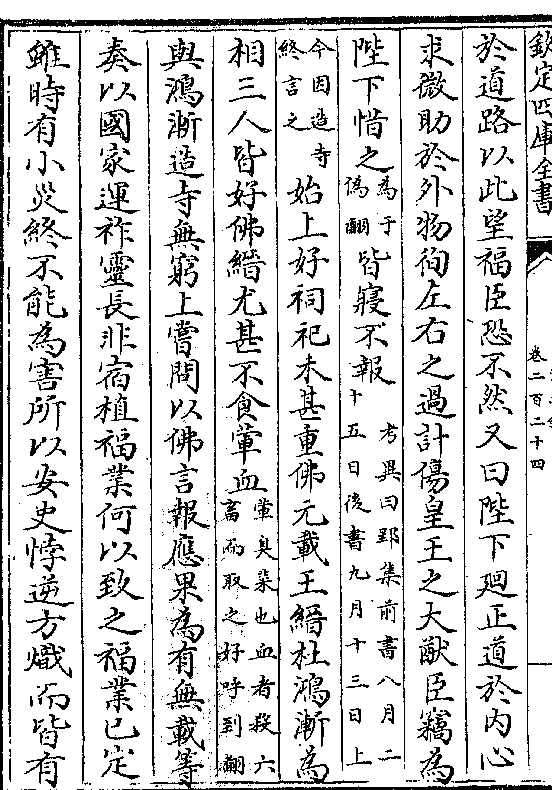 欽定四庫全書
卷二百二十四
於道路以此望福臣恐不然又曰陛下廻正道於内心
求微助於外物徇左右之過計傷皇王之大猷臣竊為
陛下惜之為于偽翻皆寢不報考異曰郢集前書八月二十五日後書九月十三日上
今因造寺終言之始上好祠祀未甚重佛元載王縉杜鴻漸為
相三人皆好佛縉尤甚不食葷血葷臭菜也血者殺六畜而取之好呼到翻
與鴻漸造寺無窮上嘗問以佛言報應果為有無載等
奏以國家運祚靈長非宿植福業何以致之福業已定
雖時有小災終不能為害所以安史悖逆方熾而皆有